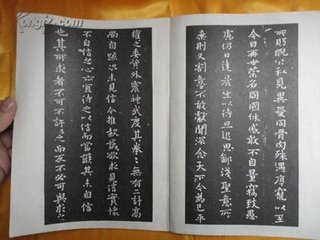 所盼睨公私見異愛同骨肉殊遇厚寵以至
今日再世榮名同國休慼敢不自量竊致愚
慮仍日達晨坐以待旦退思鄙淺聖意所
棄則又割意不敢獻聞深念天下今為已平
權之委質外震神武度其拳拳無有二計高
尚自疏況未見信今推款誠欲求見信實懷
不自信之心亦宜待之以信而當護其未自信
也其所求者不可不許許之而反不必可與求